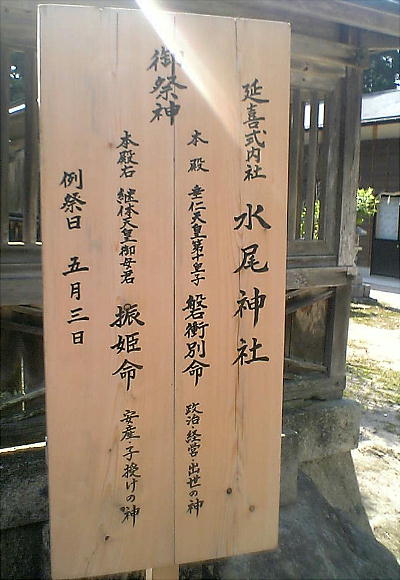 延喜式内社 水尾神社
御祭神
本殿 垂仁天皇第十皇子 磐衝別命 政治・経営・出世の神
本殿右 継体天皇御母君 振姫命 安産・子授けの神
例祭日 五月三日